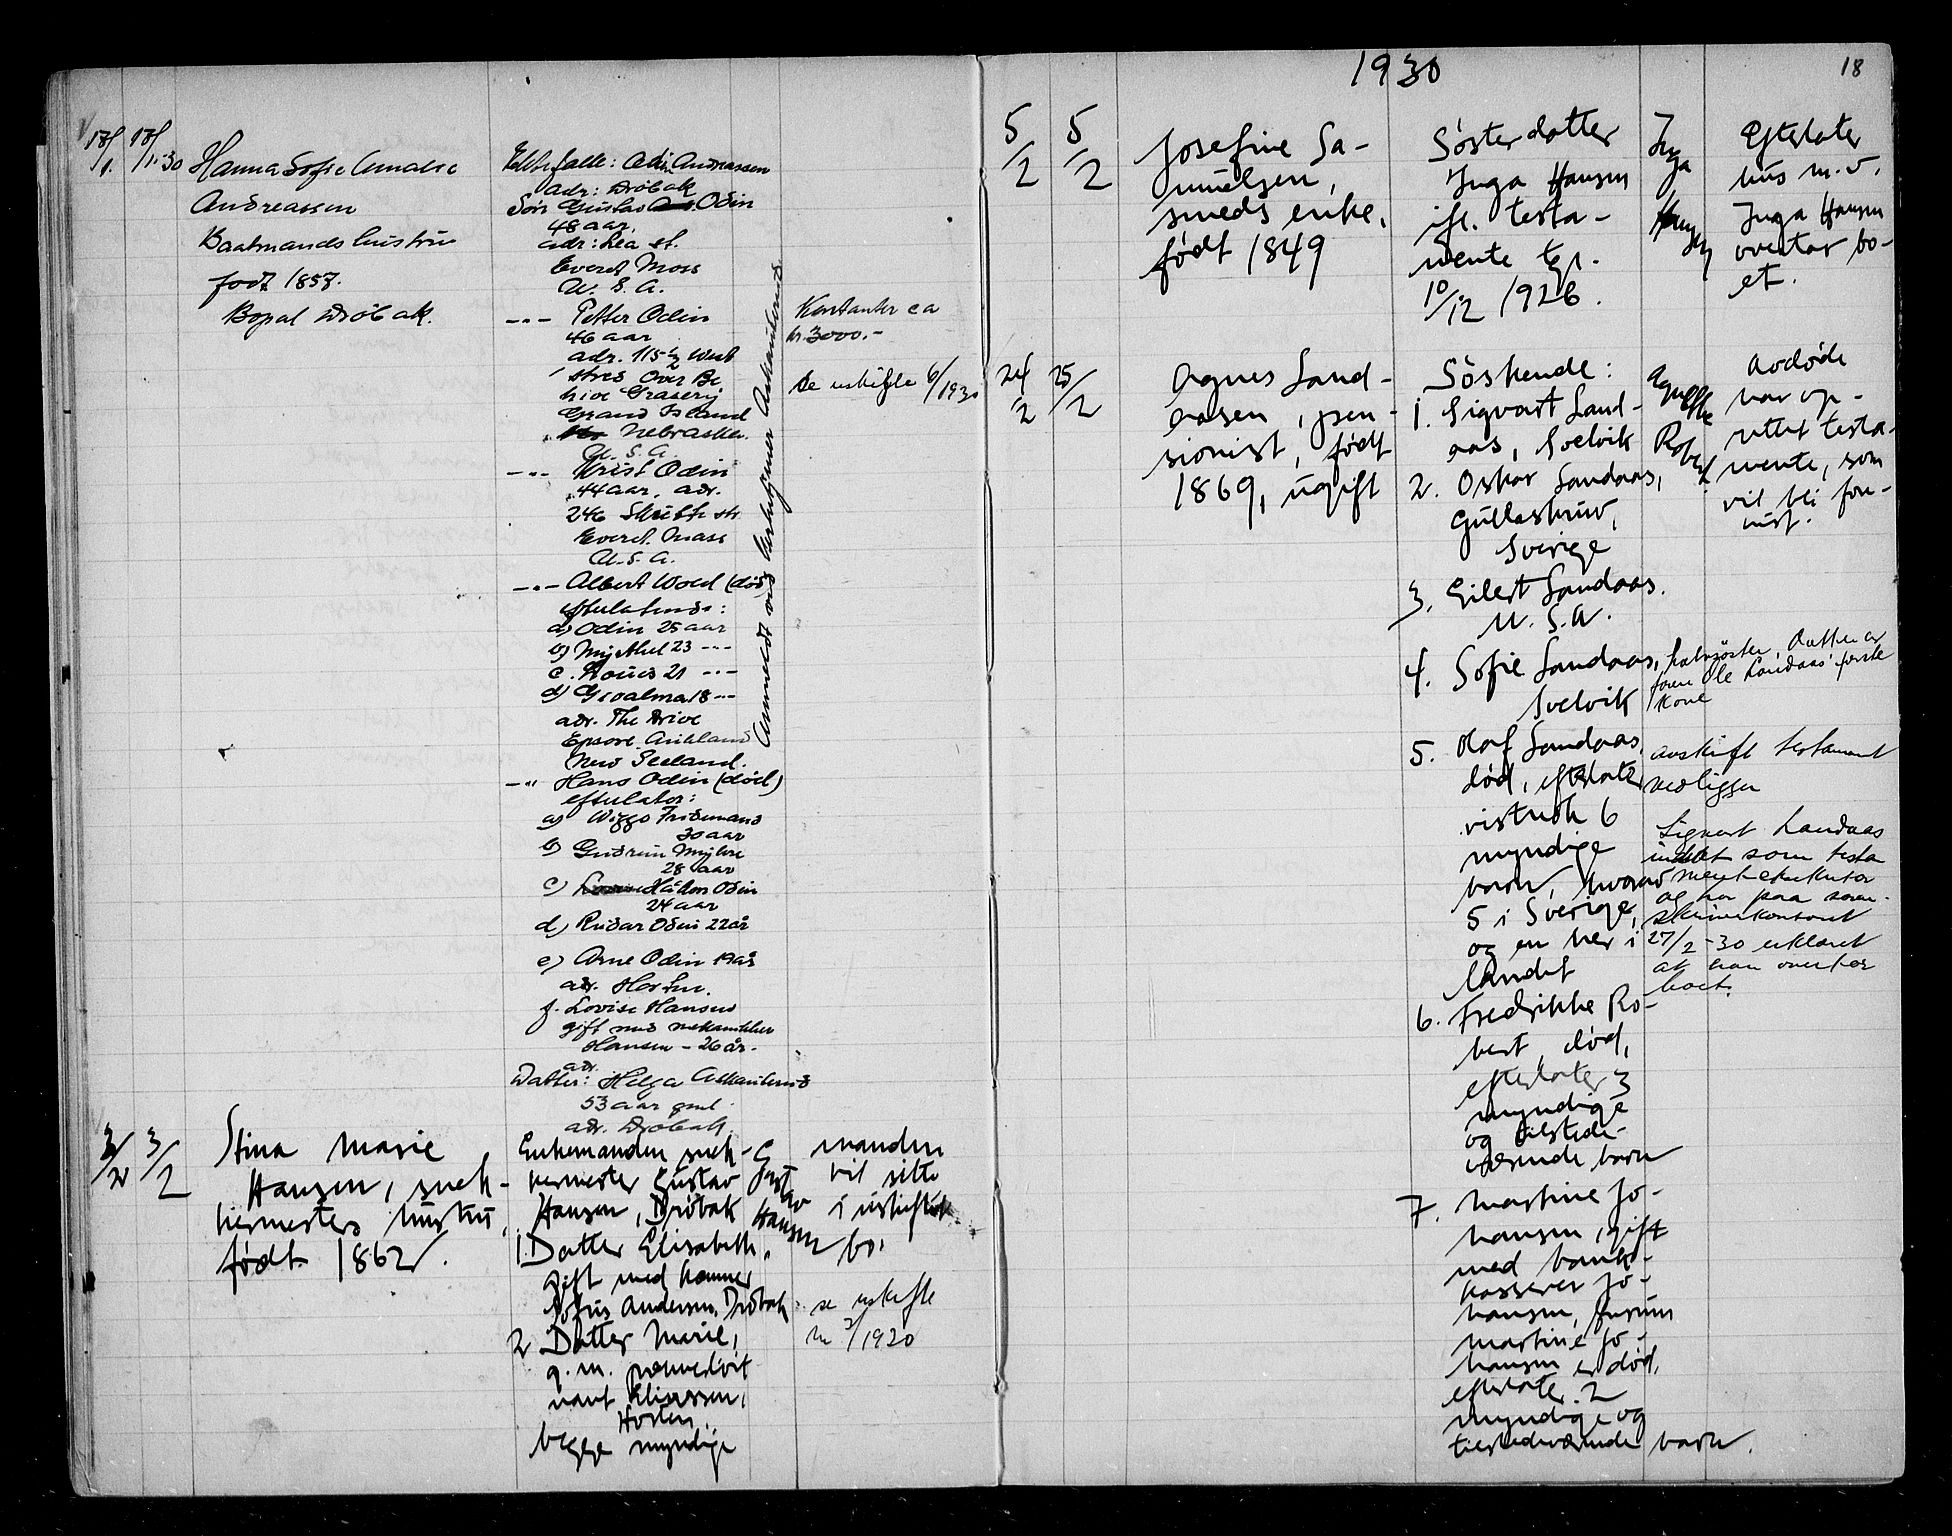 1930
18
17/1. 17/1.30
Hanna Sofie Amalie
Andreassen
Baatmands hustru
født 1857.
Bopal Drøbak.
adr: Drøbak
Søn Gustav Odin
48 aar,
adr: Lea st.
Everet Moss
U. S. A.
-"- Petter Odin
46 aar
adr. 115½ West
Grand Island
Nebraska.
U. S. A.
-"- Krist Odin
44 aar, adr.
246 st
Everet. Mass
U. S. A.
-"- Albert Woed (død)
efterlatende:
a) Odin 25 aar
b) 23 -"-
c. Louis 21 -"-
d) 18 -"-
adr. The Drive
New Seeland.
-"- Hans Odin (død)
efterlater:
a) Wiggo Fridemand
30 aar
b) Gudrun Myhre
28 aar
c) Håkon Odin
24 aar
d) Reidar Odin 22 år
e) Arne Odin 19 år
adr. Horten.
f. Lovise Hansen
gift med mekaniker
Hansen - 26 år.
adr.
Datter: Helga Askautrud
53 aar gml.
adr. Drøbak.
Anmeldt ved
Kontanter ca
kr. 3000.-
se uskifte 6/1930
3/2 3/2
Stina Marie
Hansen, snek-
kermesters hustru,
født 1862.
Enkemanden snek-
kermester Gustav
Hansen, Drøbak
1. Datter Elisabeth,
gift med
Andersen, Drøbak
2 Datter Marie,
g. m.
Eliassen,
Horten.
begge myndige
Gustav
Hansen
manden
vil sitte
i uskiftet
bo.
se uskifte
nr 2/1920
5/2 5/2
Josefine Sa-
muelsen,
smeds enke,
født 1849
Søsterdatter
Inga Hansen
ifl. testa-
mente
10/12 1926.
Inga
Hansen
Efterlater
hus m. v.
Inga Hansen
overtar bo-
et.
24/2 25/2
Agnes Land-
aasen, pen-
sionist, født
1869, ugift
Søskende:
1. Sigvart Land-
aas, Svelvik
2. Oskar Landaas,
Gullaskruv,
Sverige
3. Eilert Landaas.
U. S. A.
4. Sofie Landaas,
Svelvik
5. Olaf Landaas,
død, efterlater
6
myndige
barn, hvorav
5 i Sverige,
og en her i
landet
6. Fredrikke Ro-
bert, død,
efterlater 3
myndige
og tilstede-
værende barn
7. Martine Jo-
hansen, gift
med bank-
kasserer Jo-
hansen,
Martine Jo-
hansen er død,
efterlater 2
myndige og
tilstedeværende barn.
Robert
Avdøde
har op-
rettet testa-
mente, som
vil bli frem-
vist.
halvsøster, datter av
faren Ole Landaas' første
kone
avskrift testament
vedligger
Sigvart Landaas
indsat som testa
menteksekutor
og har paa soren-
skriverkontoret
27/2 -30 erklæret
at han overtar
boet.